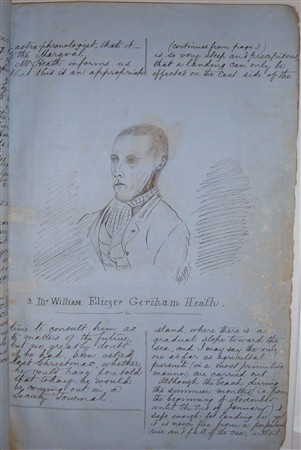 astrophrenologist, that A—
the Marqual
Mr Heath informs us
that this is an appropriate
(continues from page 3)
is so very steep and precipitous
that a landing can only be
effected on the East side of the
3. Mr William Eliezer Gersham Heath.
time to consult him as
to matters of the future,
but we greatly doubt
if he had been asked
last Christmas, whether
he would have foretold
that today he would
be coming out in a
Society Journal.
island, where there is a
gradual slope toward the
sea, and I may say the only
one as far as agricultural
pursuits (in a most primitive
manner) are carried out.
Although the beach, during
the summer months, (i.e. from
the beginning of November
until the end of January) is
safe enough for landing, yet
it is never free from a perpetual
rise and fall of the sea, without